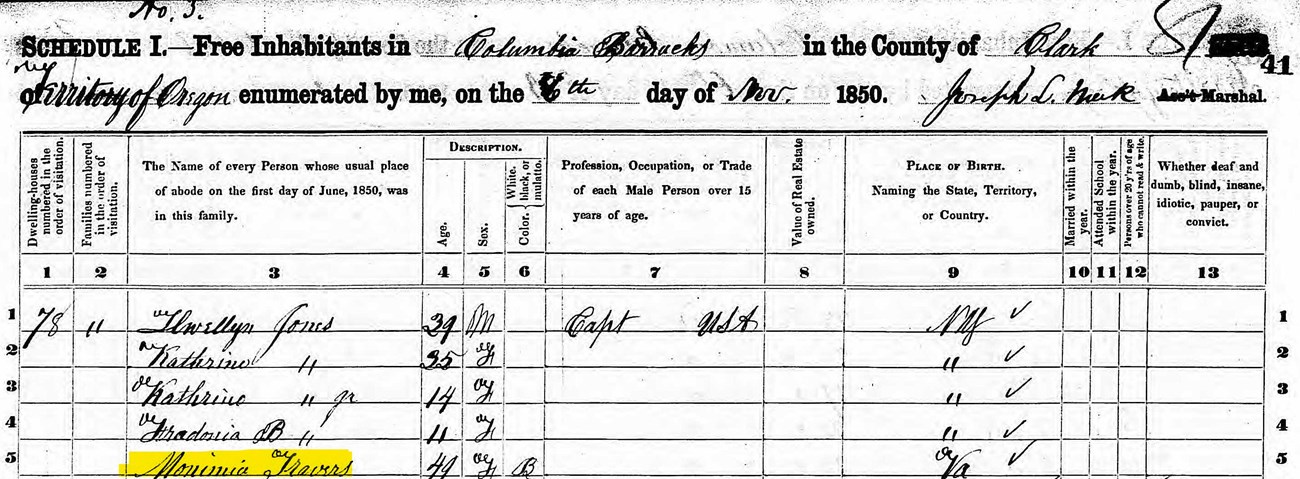 No. 3.
SCHEDULE I.—Free Inhabitants in Columbia Barracks in the County of Clark 81
41
Territory of Oregon enumerated by me, on the 6th day of Nov. 1850. Joseph L. Meek Ass't Marshal.
Dwelling-houses numbered in the order of visitation.
Families numbered in the order of visitation.
The Name of every Person whose usual place
of abode on the first day of June, 1850, was
in this family.
DESCRIPTION.
Age.
Sex.
Color. { White, black, or mulatto.
Profession, Occupation, or Trade
of each Male Person over 15
years of age.
Value of Real Estate owned.
PLACE OF BIRTH.
Naming the State, Territory,
or Country.
Married within the year.
Attended School within the year.
Persons over 20 y'rs of age who cannot read & write.
Whether deaf and
dumb, blind, insane,
idiotic, pauper, or
convict.
1 2 3 4 5 6 7 8 9 10 11 12 13
1 78 " Llwellyn Jones 39 M Capt USA NY ✓ 1
2 Kathrine " 35 F " ✓ 2
3 Kathrine " jr 14 F " ✓ 3
4 Fradonia B " 11 F " ✓ 4
5 Monimia Travers 49 F B Va ✓ 5